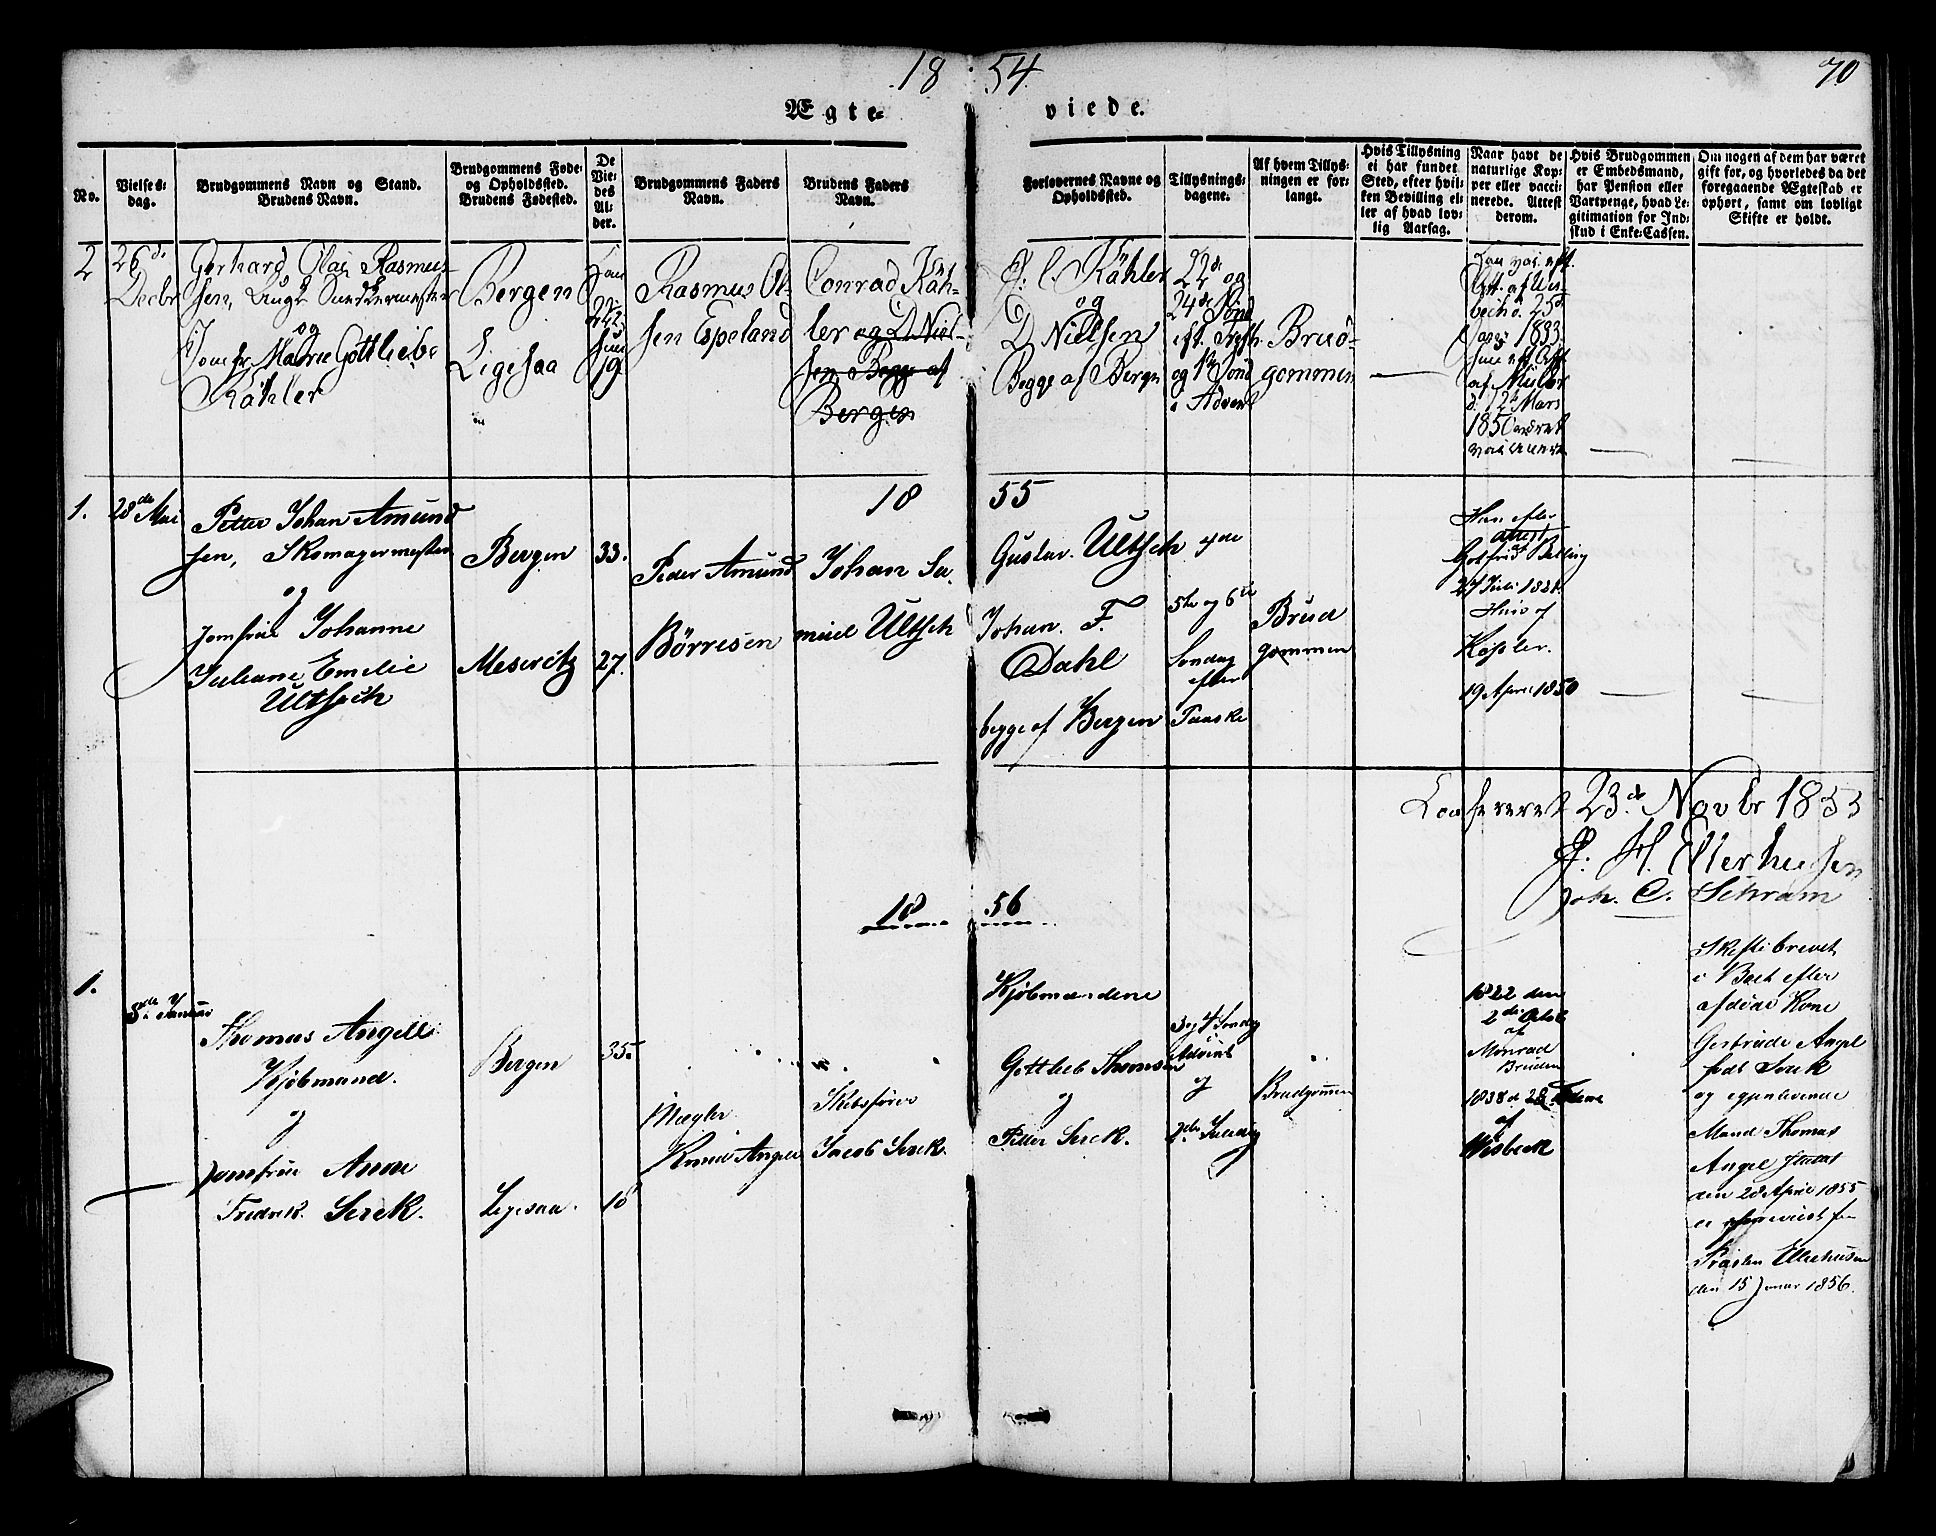 18 54. 70
Ægte= viede.
No.
Vielses=
dag.
Brudgommens Navn og Stand.
Brudens Navn.
Brudgommens Føde=
og Opholdssted.
Brudens Fødested.
De
Vie=
des
Al=
der.
Brudgommens Faders
Navn.
Brudens Faders
Navn.
Forlovernes Navne og
Opholdssted.
Tillysnings=
dagene.
Af hvem Tillys=
ningen er for=
langt.
Hvis Tillysning
ei har fundet
Sted, efter hvil=
ken Bevilling el=
ler af hvad lov=
lig Aarsag.
Naar havt de
naturlige Kop=
per eller vacci=
nerede. Attest
derom.
Hvis Brudgommen
er Embedsmand,
har Pension eller
Vartpenge, hvad Le=
gitimation for Ind=
skud i Enke=Cassen.
Om nogen af dem har været
gift før, og hvorledes da det
foregaaende Ægteskab er
ophørt, samt om lovligt
Skifte er holdt.
2
26d.
Decbr
Gerhard Olai Rasmus
sen, Snedkermester
og
Jomfr. Marie Gottliebe
Kähler
Bergen
Ligesaa
19
Rasmus Ol=
sen Espeland
Conrad Käh=
ler og D. Niel=
sen Begge af
Bergen
C. Kähler
og
D Nielsen
Begge af Bergn
22d og
24de Sønd
eft. Tref.
og 1te Sønd
i Advent
Brud=
gommen
25d
1833
af
d. 12 Mars
1850
18 55
1.
28de Mai
Petter Johan Amund
sen, Skomagermester
og
Jomfrue Johanne
Juliane Emelie
Ultsch
Bergen
Meseritz
33.
27.
Peder Amund
Börresen
Johan Sa.
muel Ultsch
Gustav. Ultsch
Johan. F.
Dahl
begge af Bergen
4de
5te og 6te
Søndag
efter
Paaske
Brud
gommen
Han efter
attest
af
Gotfried
27 Juli 1821.
Hun af
Kessler.
19 April 1850
23d Novbr 1855
H. Ellerhusen
Joh. C. Schram
18 56
1.
8de Januar
Thomas Angell
Kjöbmand.
og
Jomfrue Anne
Fredrik. Serck.
Bergen
Ligesaa.
35.
18
Mægler
Knud Angell
Skibsfører
Jacob Serck.
Kjöbmændene
Gottlieb Thomsen
og
Petter Serck.
3 og 4 Søndag
Advent
og
2de Juledag
Brudgommen
1822 den
2de Octob
af
Monrad
Bruden
1838 d 28
af
Wisbeck
Skiftebrevet
i Boet efter
afdøde Kone
Gertrude Angel
født Serck
og egenlevende
Mand Thomas
Angel sluttet
den 28 April 1855
er foreviist for
Præsten Ellerhusen
den 15 Januar 1856.